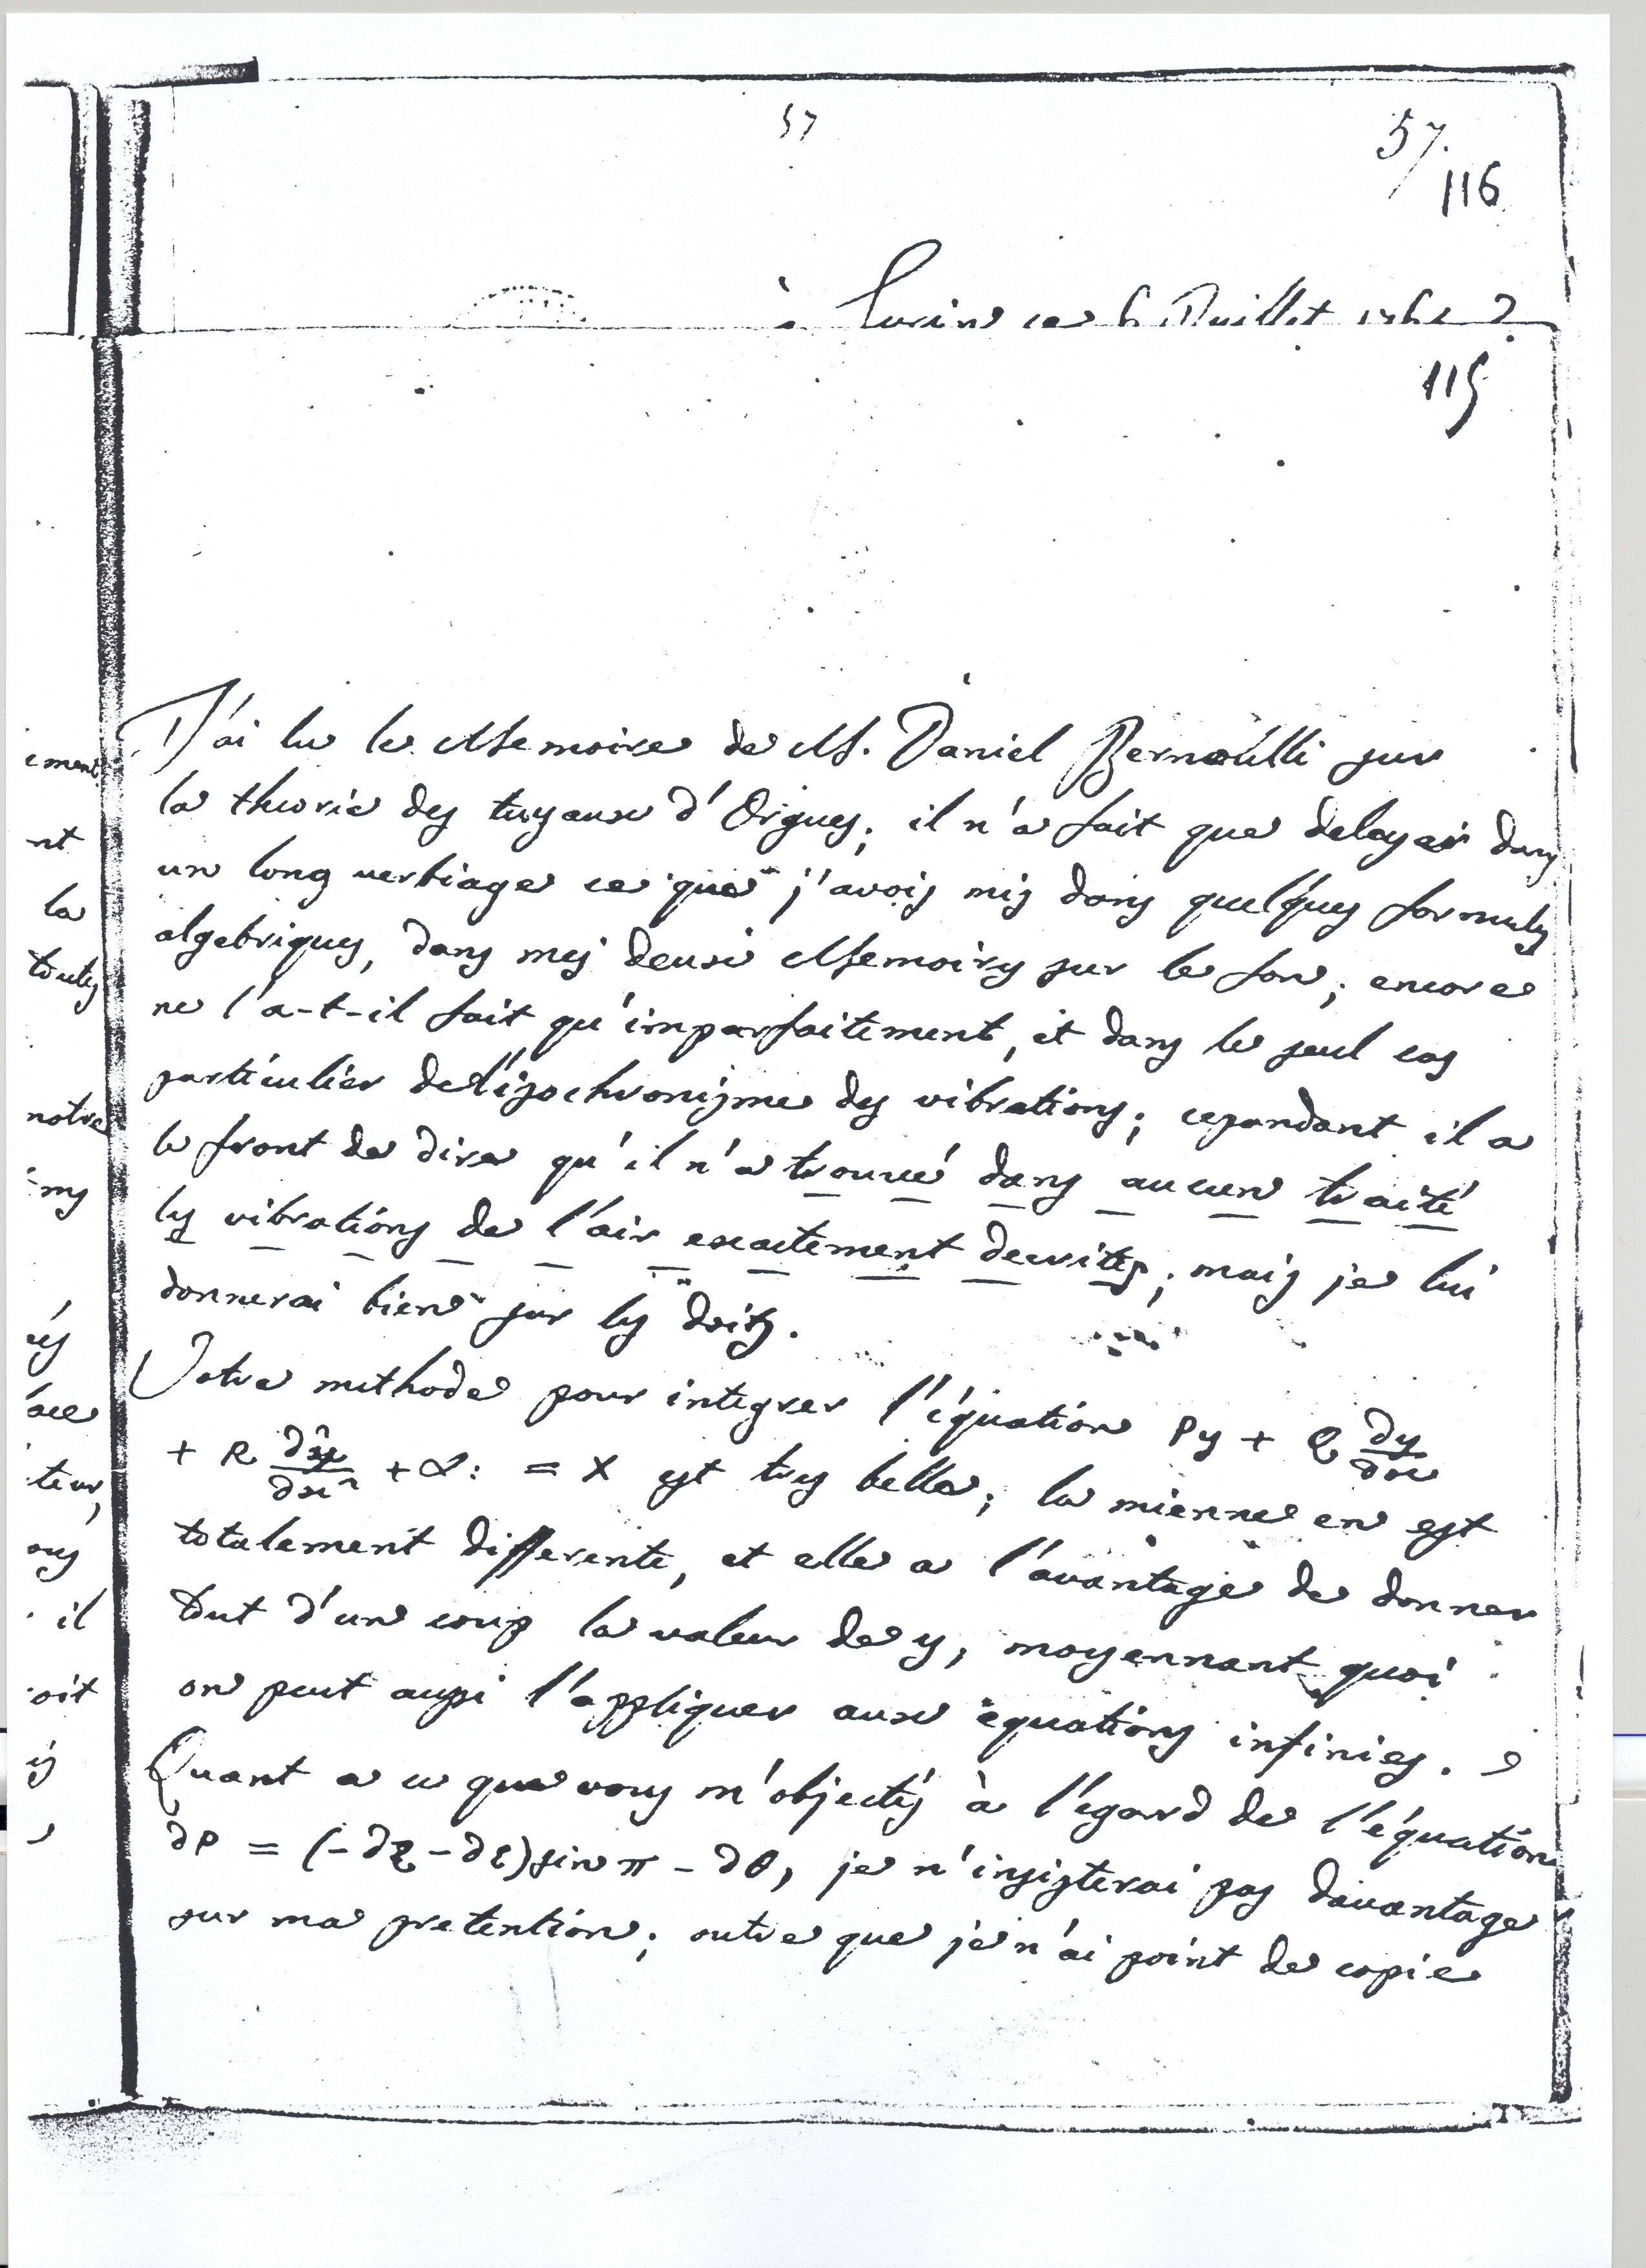 57
57.
116
à Turin ce 6 Juillet
115
J'ai lu le Memoire de M. Daniel Bernoulli sur
la theorie des tuyaux d'Orgues; il n'a fait que delayer dans
un long verbiage ce que j'avois mis dans quelques formules
algebriques, dans mes deux Memoires sur le son; encore
ne l'a-t-il fait qu'imparfaitement, et dans le seul cas
particulier de l'isochronisme des vibrations; cependant il a
le front de dire qu'il n'a trouvé dans aucun traité
les vibrations de l'air exactement decrites; mais je lui
donnerai bien sur les doits.
Votre methode pour integrer l'équation Py + Q ∂y/∂x
+ R ∂²y/∂x² + &: = X est tres belle; la mienne en est
totalement differente, et elle a l'avantage de donner
tout d'un coup la valeur de y, moyennant quoi
on peut aussi l'appliquer aux equations infinies.
Quant a ce que vous m'objectés à l'egard de l'équation
∂P = (-∂Z - ∂ε) sin π - ∂θ, je n'insisterai pas davantage
sur ma pretention; outre que je n'ai point de copie
ement
nt
la
toutes
notre
ms
és
ace
teur,
ous
il
oit
is